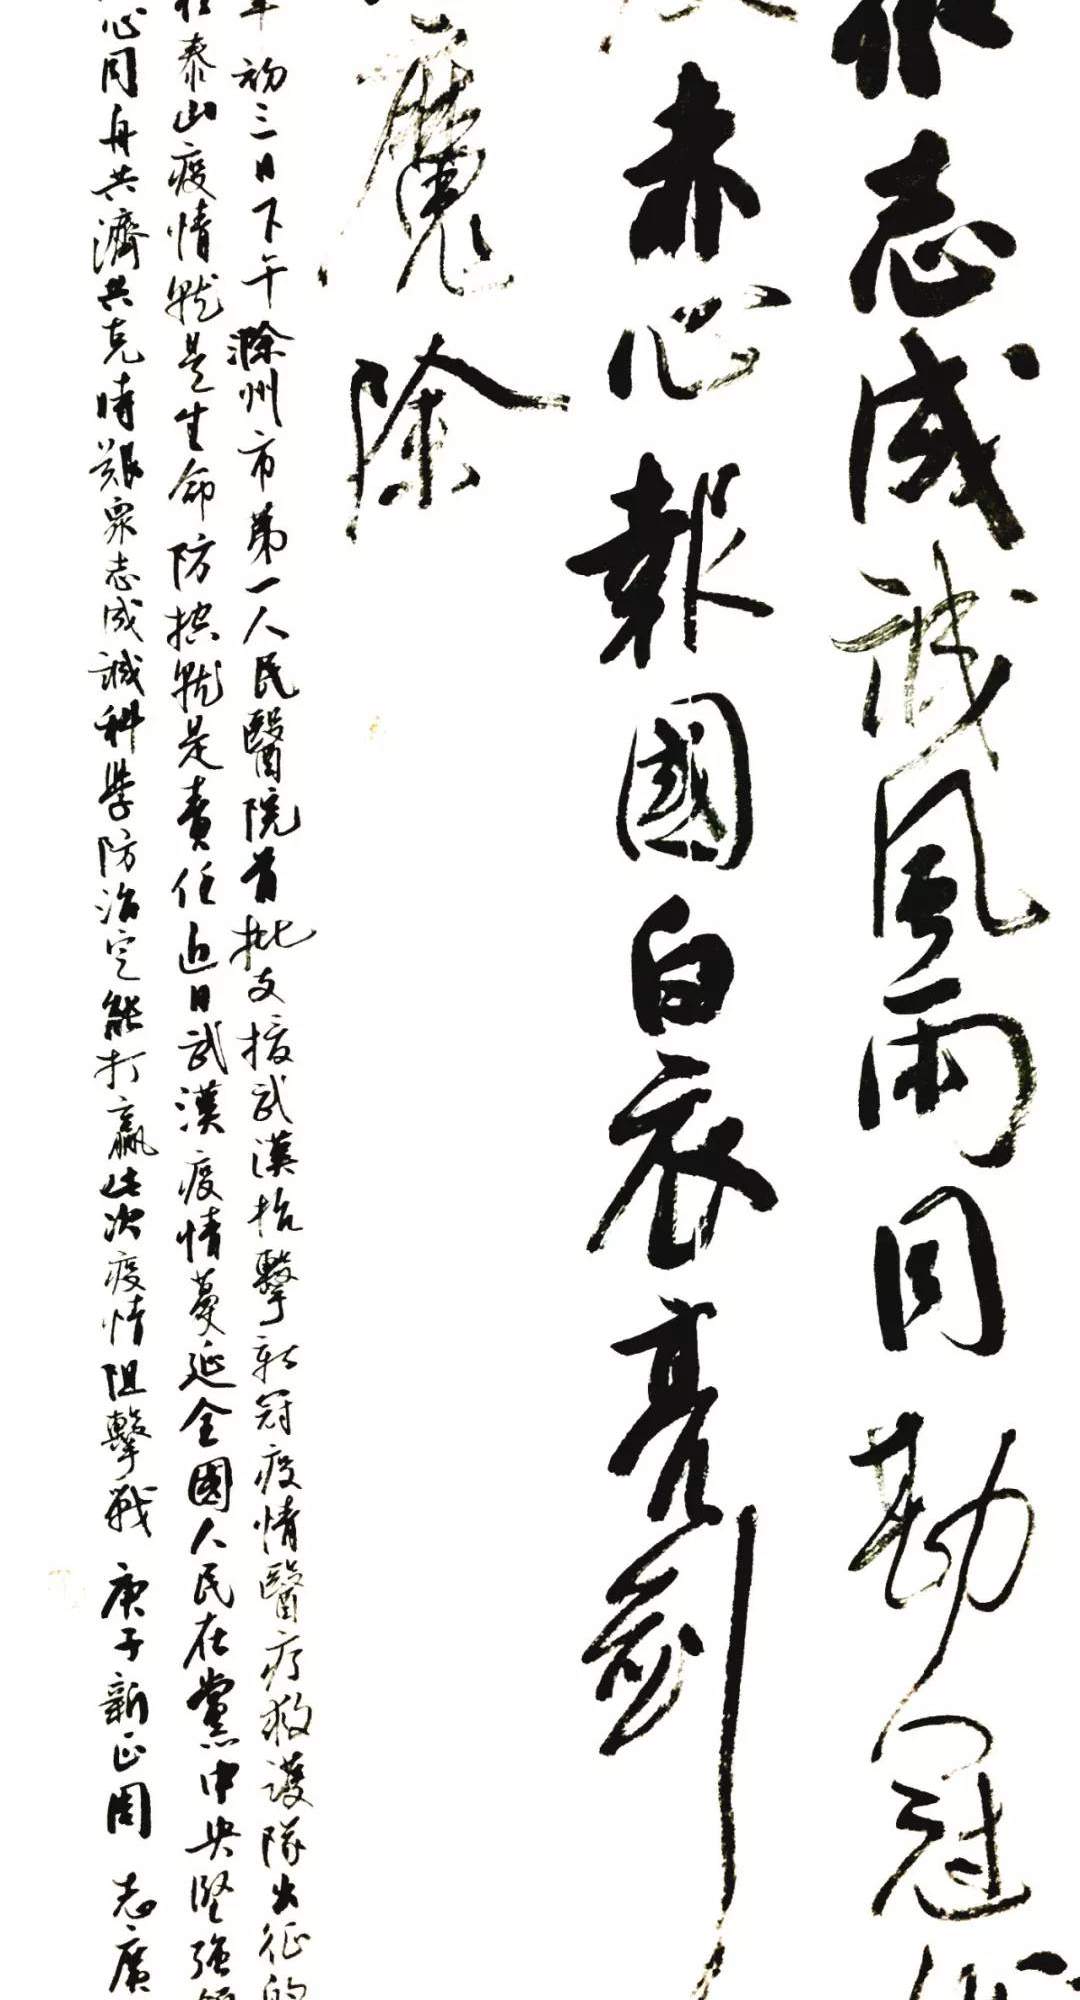 志成誠風雨同勘冠
赤心報國白衣亮劍
魔除
初三日下午滁州市第一人民醫院首批支援武漢抗擊新冠疫情醫疗救護隊出征的
泰山疫情就是生命防控就是責任近日武漢疫情蔓延全國人民在黨中央堅強
心同舟共濟共克時艱衆志成誠科學防治定能打贏此次疫情阻擊戰 庚子新正周 志廣